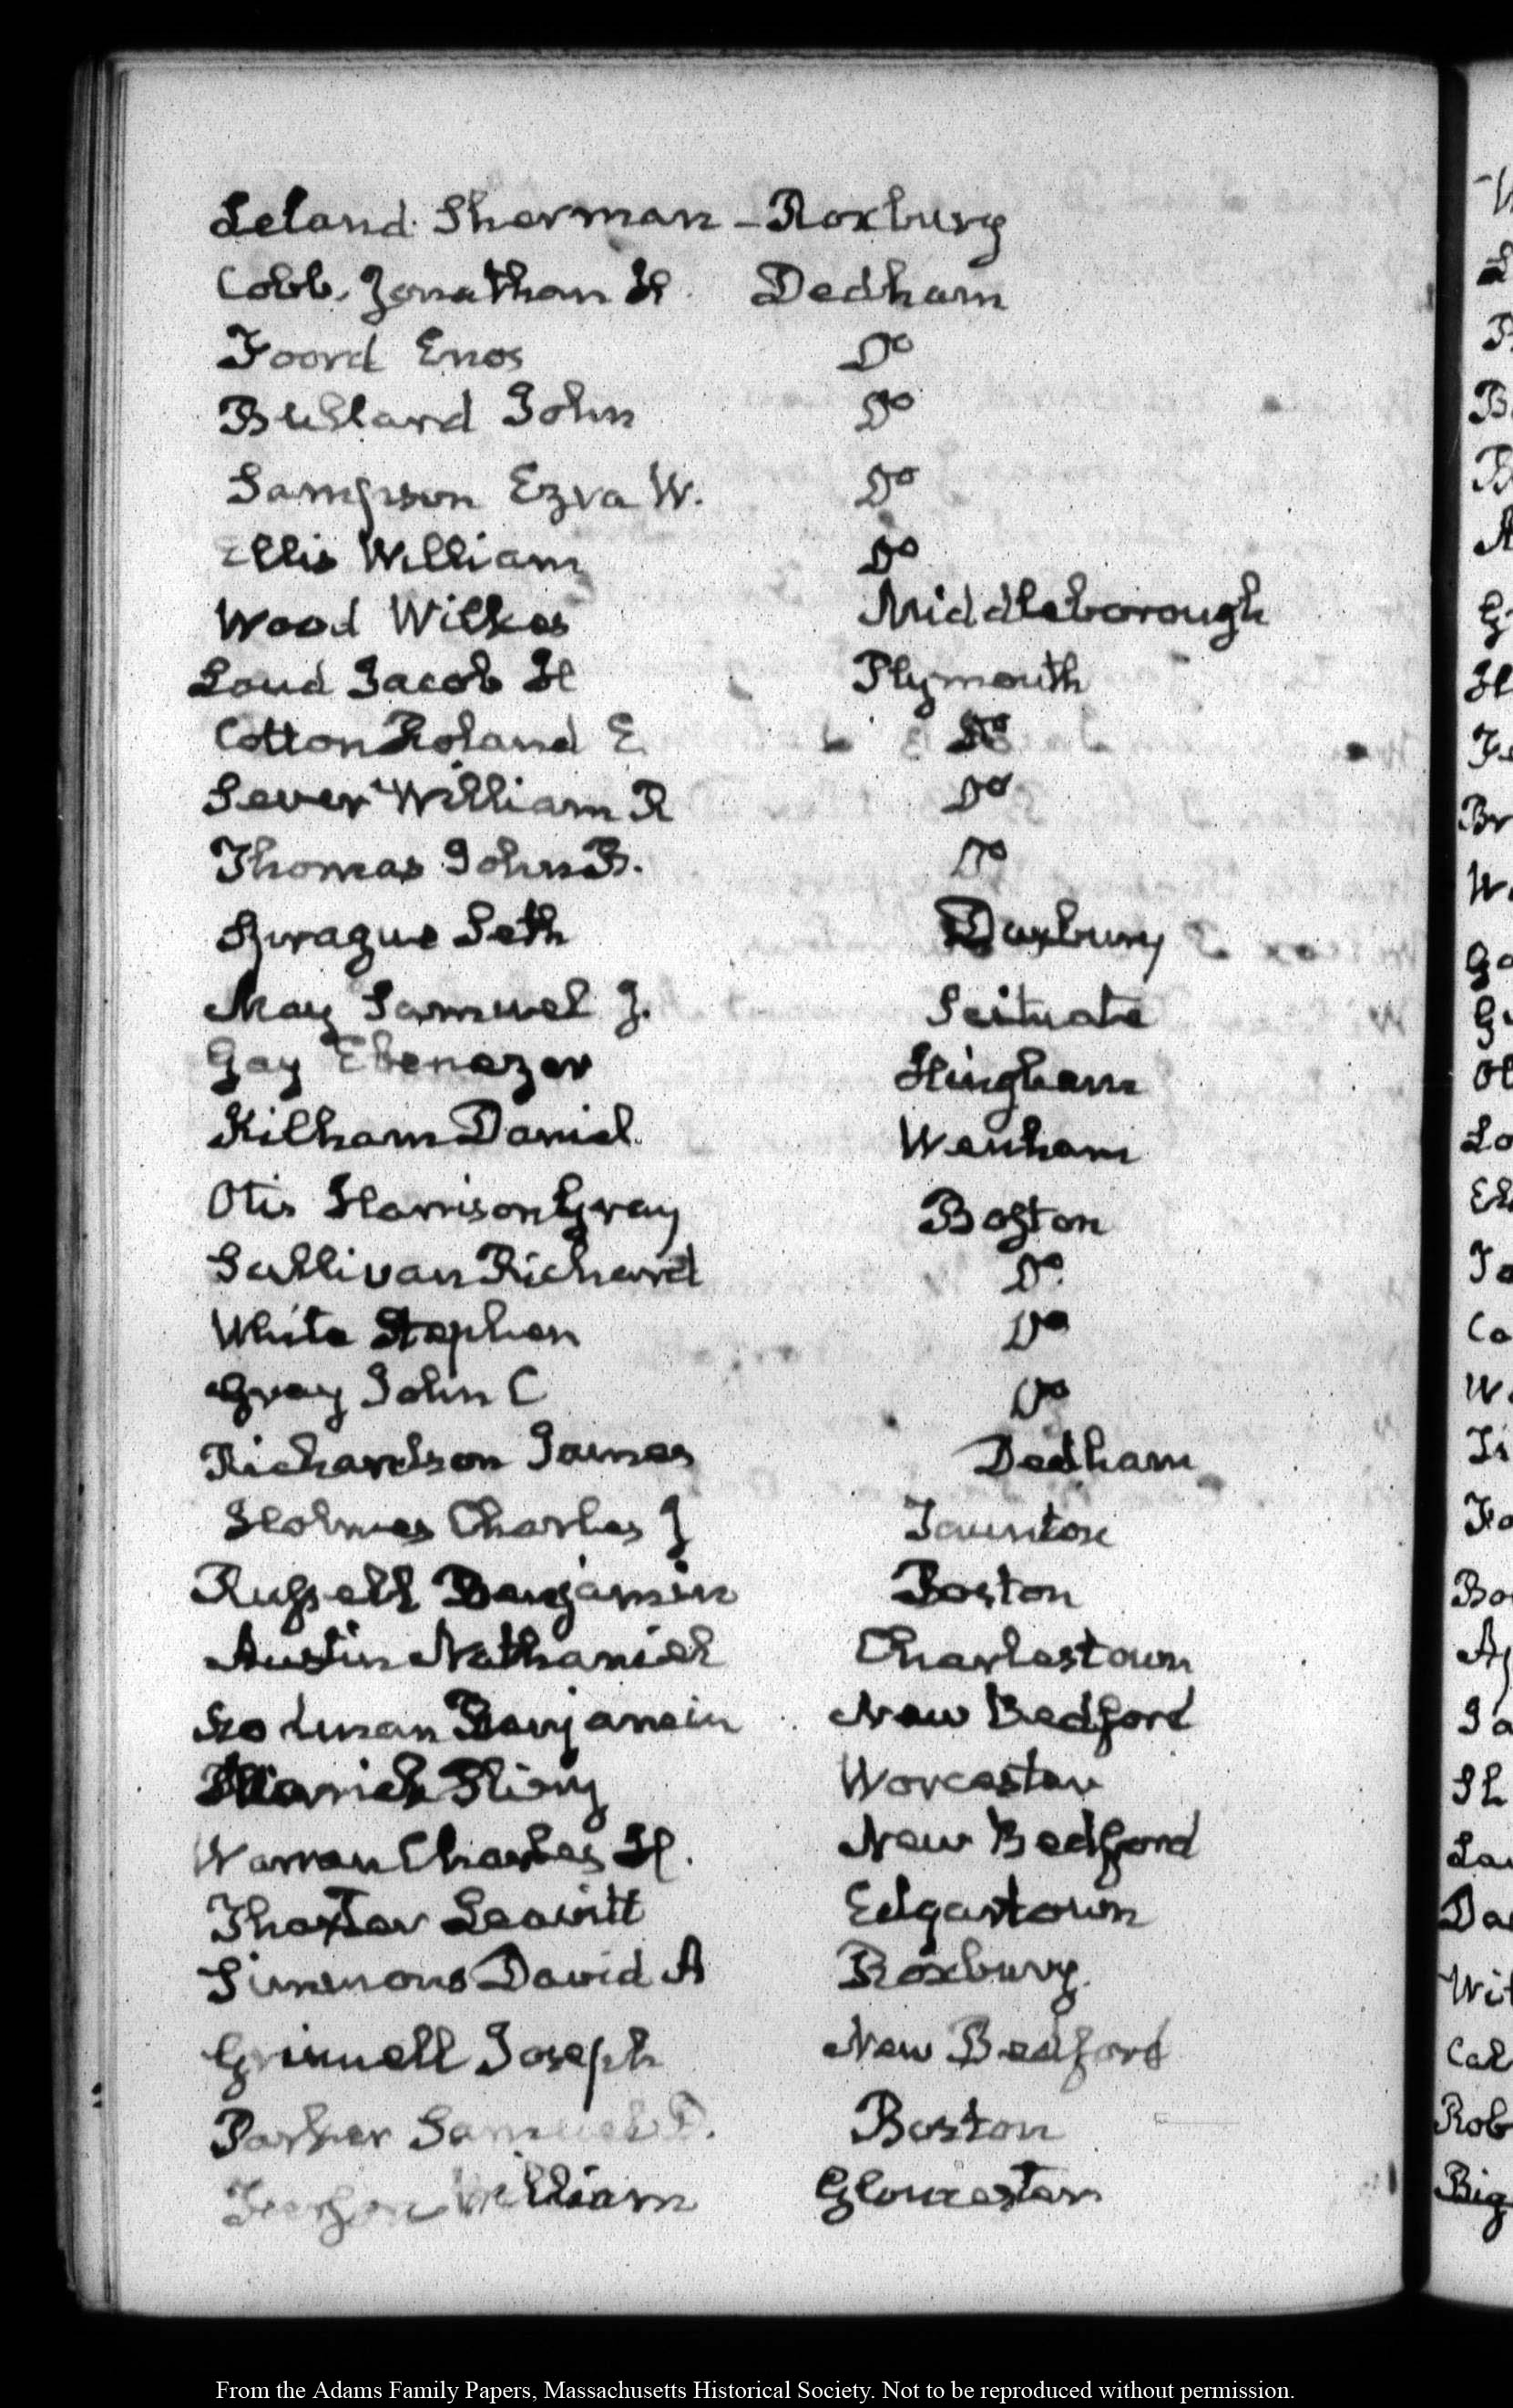 Leland Sherman - Roxbury
Cobb, Jonathan H. Dedham
Foord Enos Do
Bullard John Do
Sampson Ezra W. Do
Ellis William Do
Wood Wilkes Middleborough
Loud Jacob H Plymouth
Cotton Roland E. Do
Sever William R Do
Thomas John B. Do
Sprague Seth Duxbury
May Samuel J. Scituate
Gay Ebenezer Hingham
Kilham Daniel. Wenham
Otis Harrison Gray Boston
Sullivan Richard Do
White Stephen Do
Gray John C Do
Richardson James Dedham
Holmes Charles J Taunton
Russell Benjamin Boston
Austin Nathaniel Charlestown
Rodman Benjamin New Bedford
Merrick Pliny Worcester
Warren Charles H. New Bedford
Thaxter Leavitt Edgartown
Simmons David A Roxbury.
Grinnell Joseph New Bedford
Parker Samuel D. Boston
William Gloucester
W
L
P
B
B
A
G
H
Fe
Br
W
Ga
G
Ol
Lo
El
To
Ca
W
Ti
Fo
Bo
A
Ja
Sh
La
Da
Wit
Cal
Rob
Big
From the Adams Family Papers, Massachusetts Historical Society. Not to be reproduced without permission.